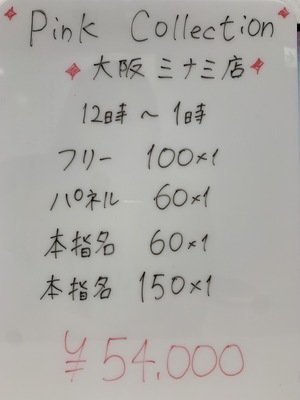 Pink Collection
大阪 ミナミ店
12時 ~ 1時
フリー 100×1
パネル 60×1
本指名 60×1
本指名 150×1
¥54.000